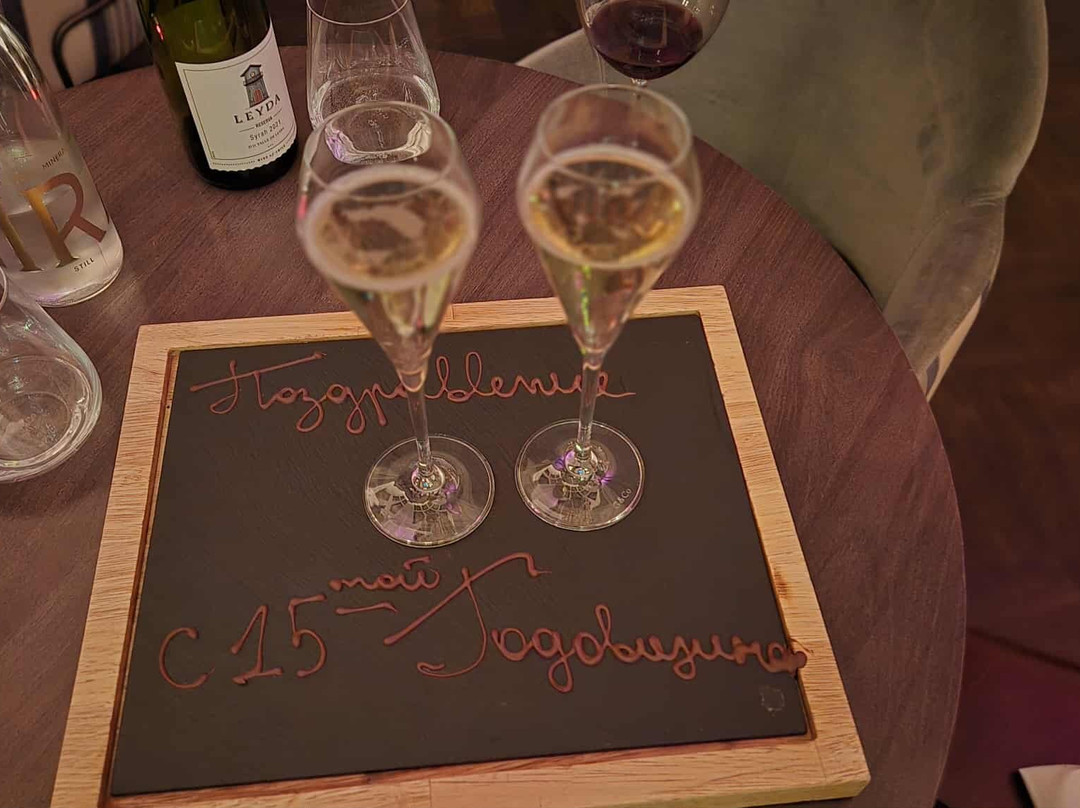 LEYDA
RESERVA
Syrah 2021
MINERA
IR
STILL
Поздравление
С 15 той Годовщиной
&Co